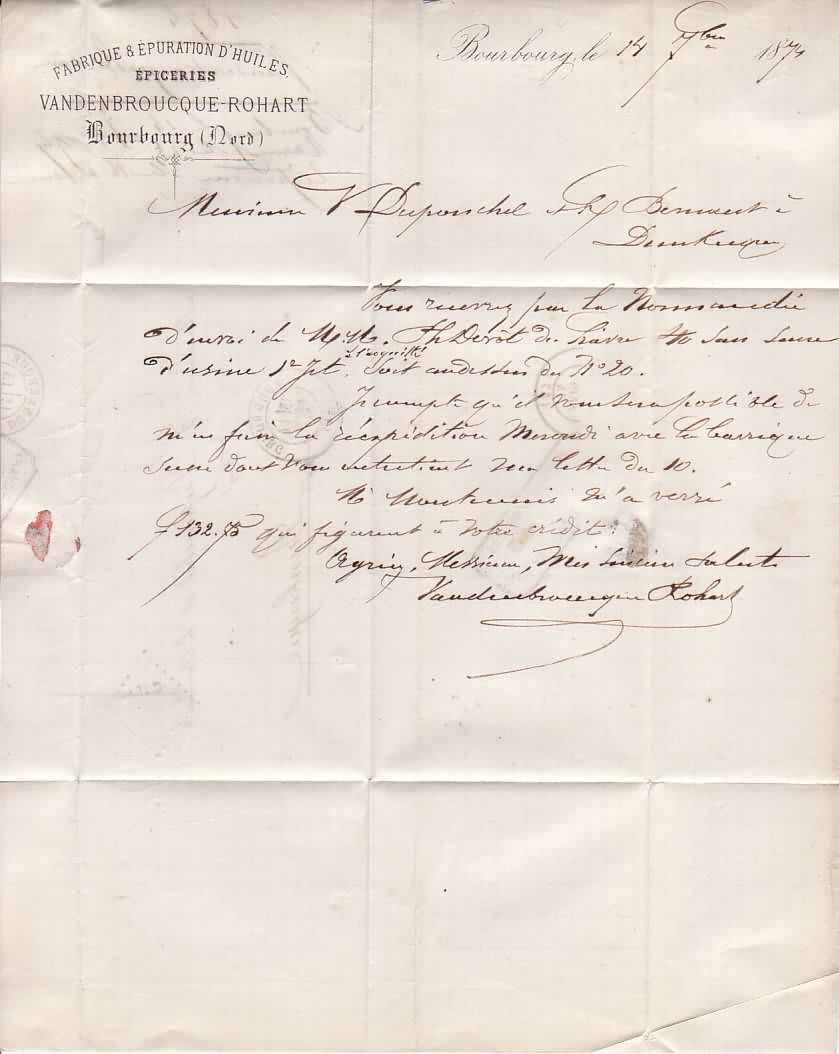 FABRIQUE & ÉPURATION D'HUILES,
ÉPICERIES
VANDENBROUCQUE-ROHART
Bourbourg (Nord)
Bourbourg, le 14 7bre 1873
Messieurs V Duponchel & Ch Bernaert à
Dunkerque
Vous recevrez par la Normandie
d'envoi de M.M. Th Derôt du havre 40 sans
d'usine 1er Jet, soit au dessus du No 20.
& l'acquitté
Je compte qu'il vous sera possible de
m'en faire la réexpédition Mercredi avec la barrique
dont vous entretient ma lettre du 10.
Mr m'a versé
f 132.75 qui figurent à votre crédit.
Agréez, Messieurs, Mes Sincères saluts
Vandenbroucque Rohart